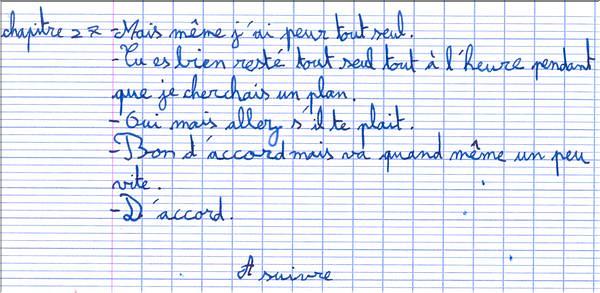 chapitre 27 -Mais même j'ai peur tout seul.
-Tu es bien resté tout seul tout à l'heure pendant
que je cherchais un plan.
-Oui mais allez s'il te plait.
-Bon d'accord mais va quand même un peu
vite.
-D'accord.
A suivre